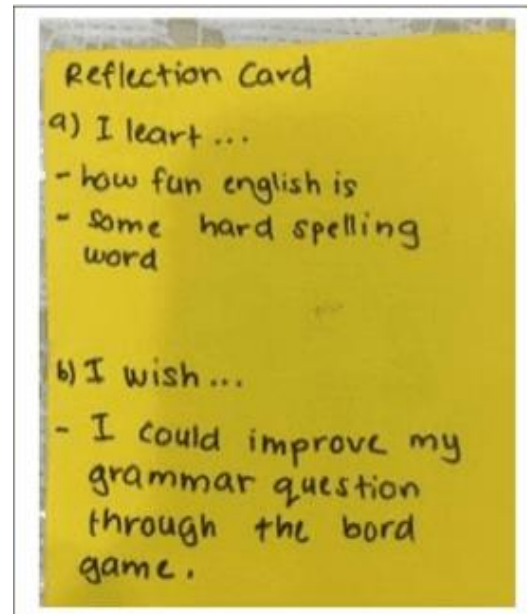 Reflection Card
a) I leart...
- how fun english is
- some hard spelling
word
b) I wish...
- I could improve my
grammar question
through the bord
game.